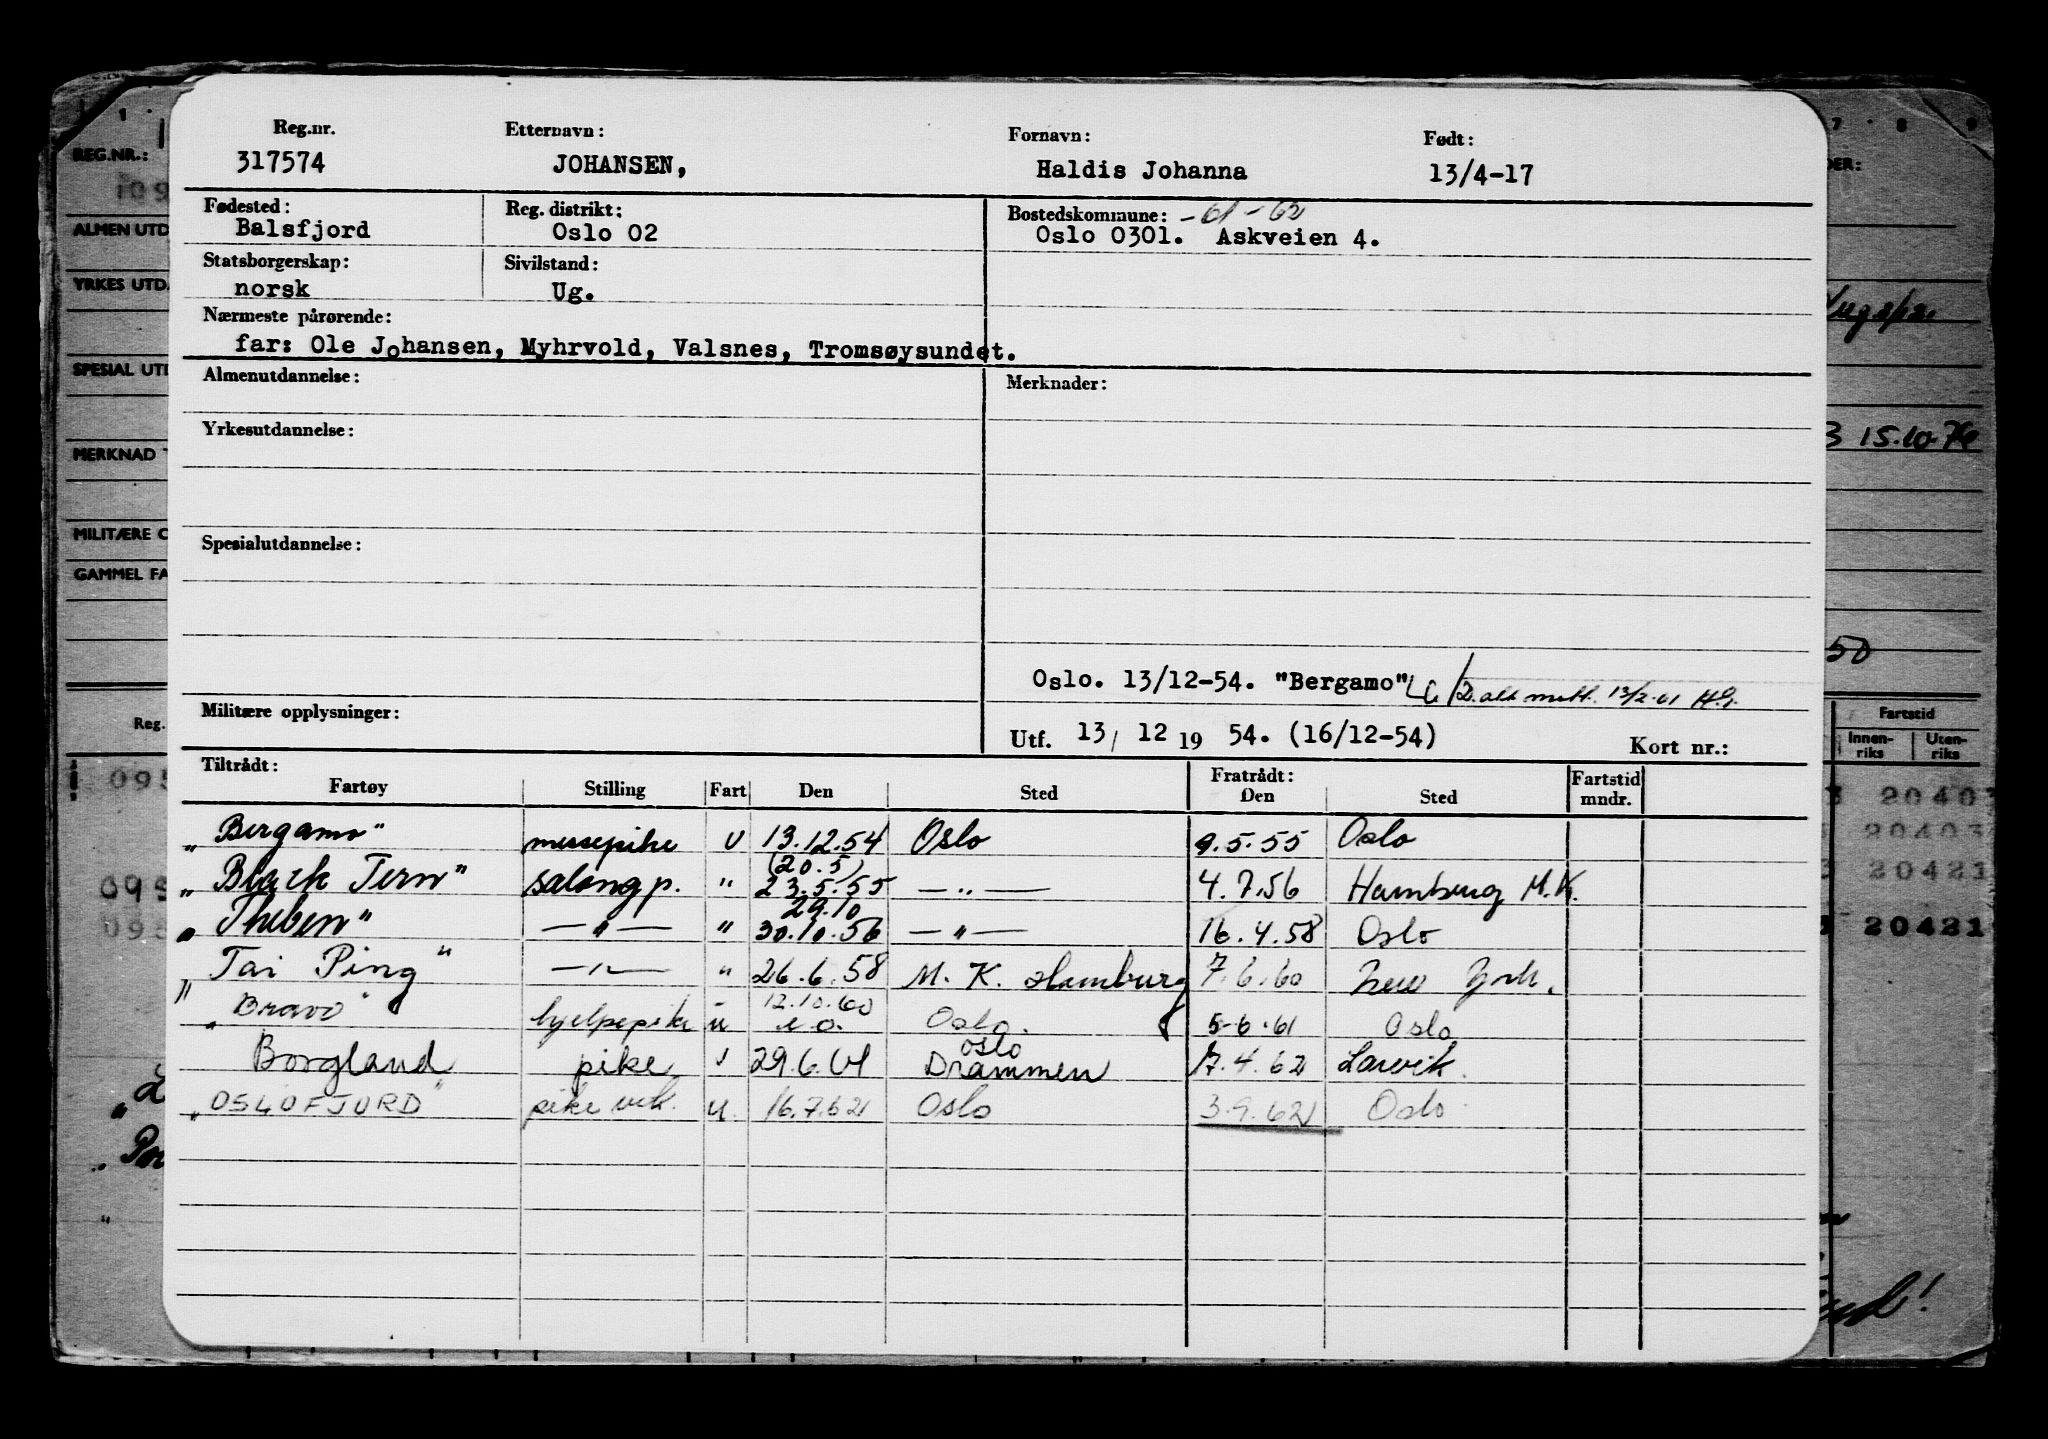 Reg.nr. Etternavn: Fornavn: Født:
317574 JOHANSEN, Haldis Johanna 13/4-17
Fødested: Reg. distrikt: Bostedskommune: -61-62
Balsfjord Oslo 02 Oslo 0301. Askveien 4.
Statsborgerskap: Sivilstand:
norsk Ug.
Nærmeste pårørende:
far: Ole Johansen, Myhrvold, Valsnes, Tromsøysundet.
Almenutdannelse: Merknader:
Yrkesutdannelse:
Spesialutdannelse:
Oslo. 13/12-54. "Bergamo" D.alb mott. 13/2-61
Militære opplysninger:
Utf. 13/ 12 19 54. (16/12-54) Kort nr.:
Tiltrådt: Fratrådt: Fartstid
Fartøy Stilling Fart Den Sted Den Sted mndr.
„Bergamo" messepike U 13.12.54 Oslo 9.5.55 Oslo
(20.5)
„Black Tern" salongp. " 23.5.55 —"— 4.7.56 Hamburg M.K.
29.10
„Theben" —"— " 30.10.56 —"— 16.4.58 Oslo
„Tai Ping" —"— " 26.6.58 M. K. Hamburg 7.6.60 New York.
12.10.60
„Bravo" hjelpepike u Oslo. 5-6.61 Oslo
Oslo
Borgland pike 29.6.61 Drammen 17.4.62 Larvik.
„OSLOFJORD" pike vik. u. 16.7.62 Oslo 3.9.62 Oslo
REG.NR.:
109
ALMEN UTD
YRKES UTD.
SPESIAL UTD
MERKNAD
MILITÆRE O
GAMMEL FA
Reg.
095
095
095
7 8 9
DER:
3 15.10.76
50
Fartstid
Innen-riks Uten-riks
20403
20403
20421
20421